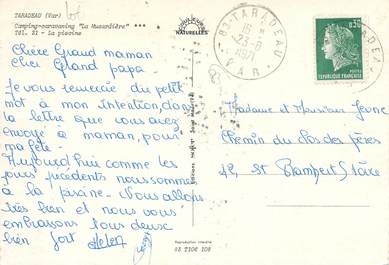 TARADEAU (Var)
Camping-caravaning "La Musardière" ***
Tél. 21 - La piscine
NATURELLES
83-TARADEAU
16 H
23-8
1971
VAR
0,30
REPUBLIQUE FRANÇAISE
Chère Grand maman
cher Grand papa
Je vous remercie du petit
mot à mon intention, dans
la lettre que vous avez
envoyé à maman, pour
ma fête.
Aujourd'hui comme les
jours précédents nous sommes
à la piscine. Nous allons
très bien et nous vous
embrassons tous deux
bien fort Helen
Madame et Monsieur
Chemin du Clos des Pères
42 St Rambert s/Loire
Reproduction interdite
83 TIOE 108